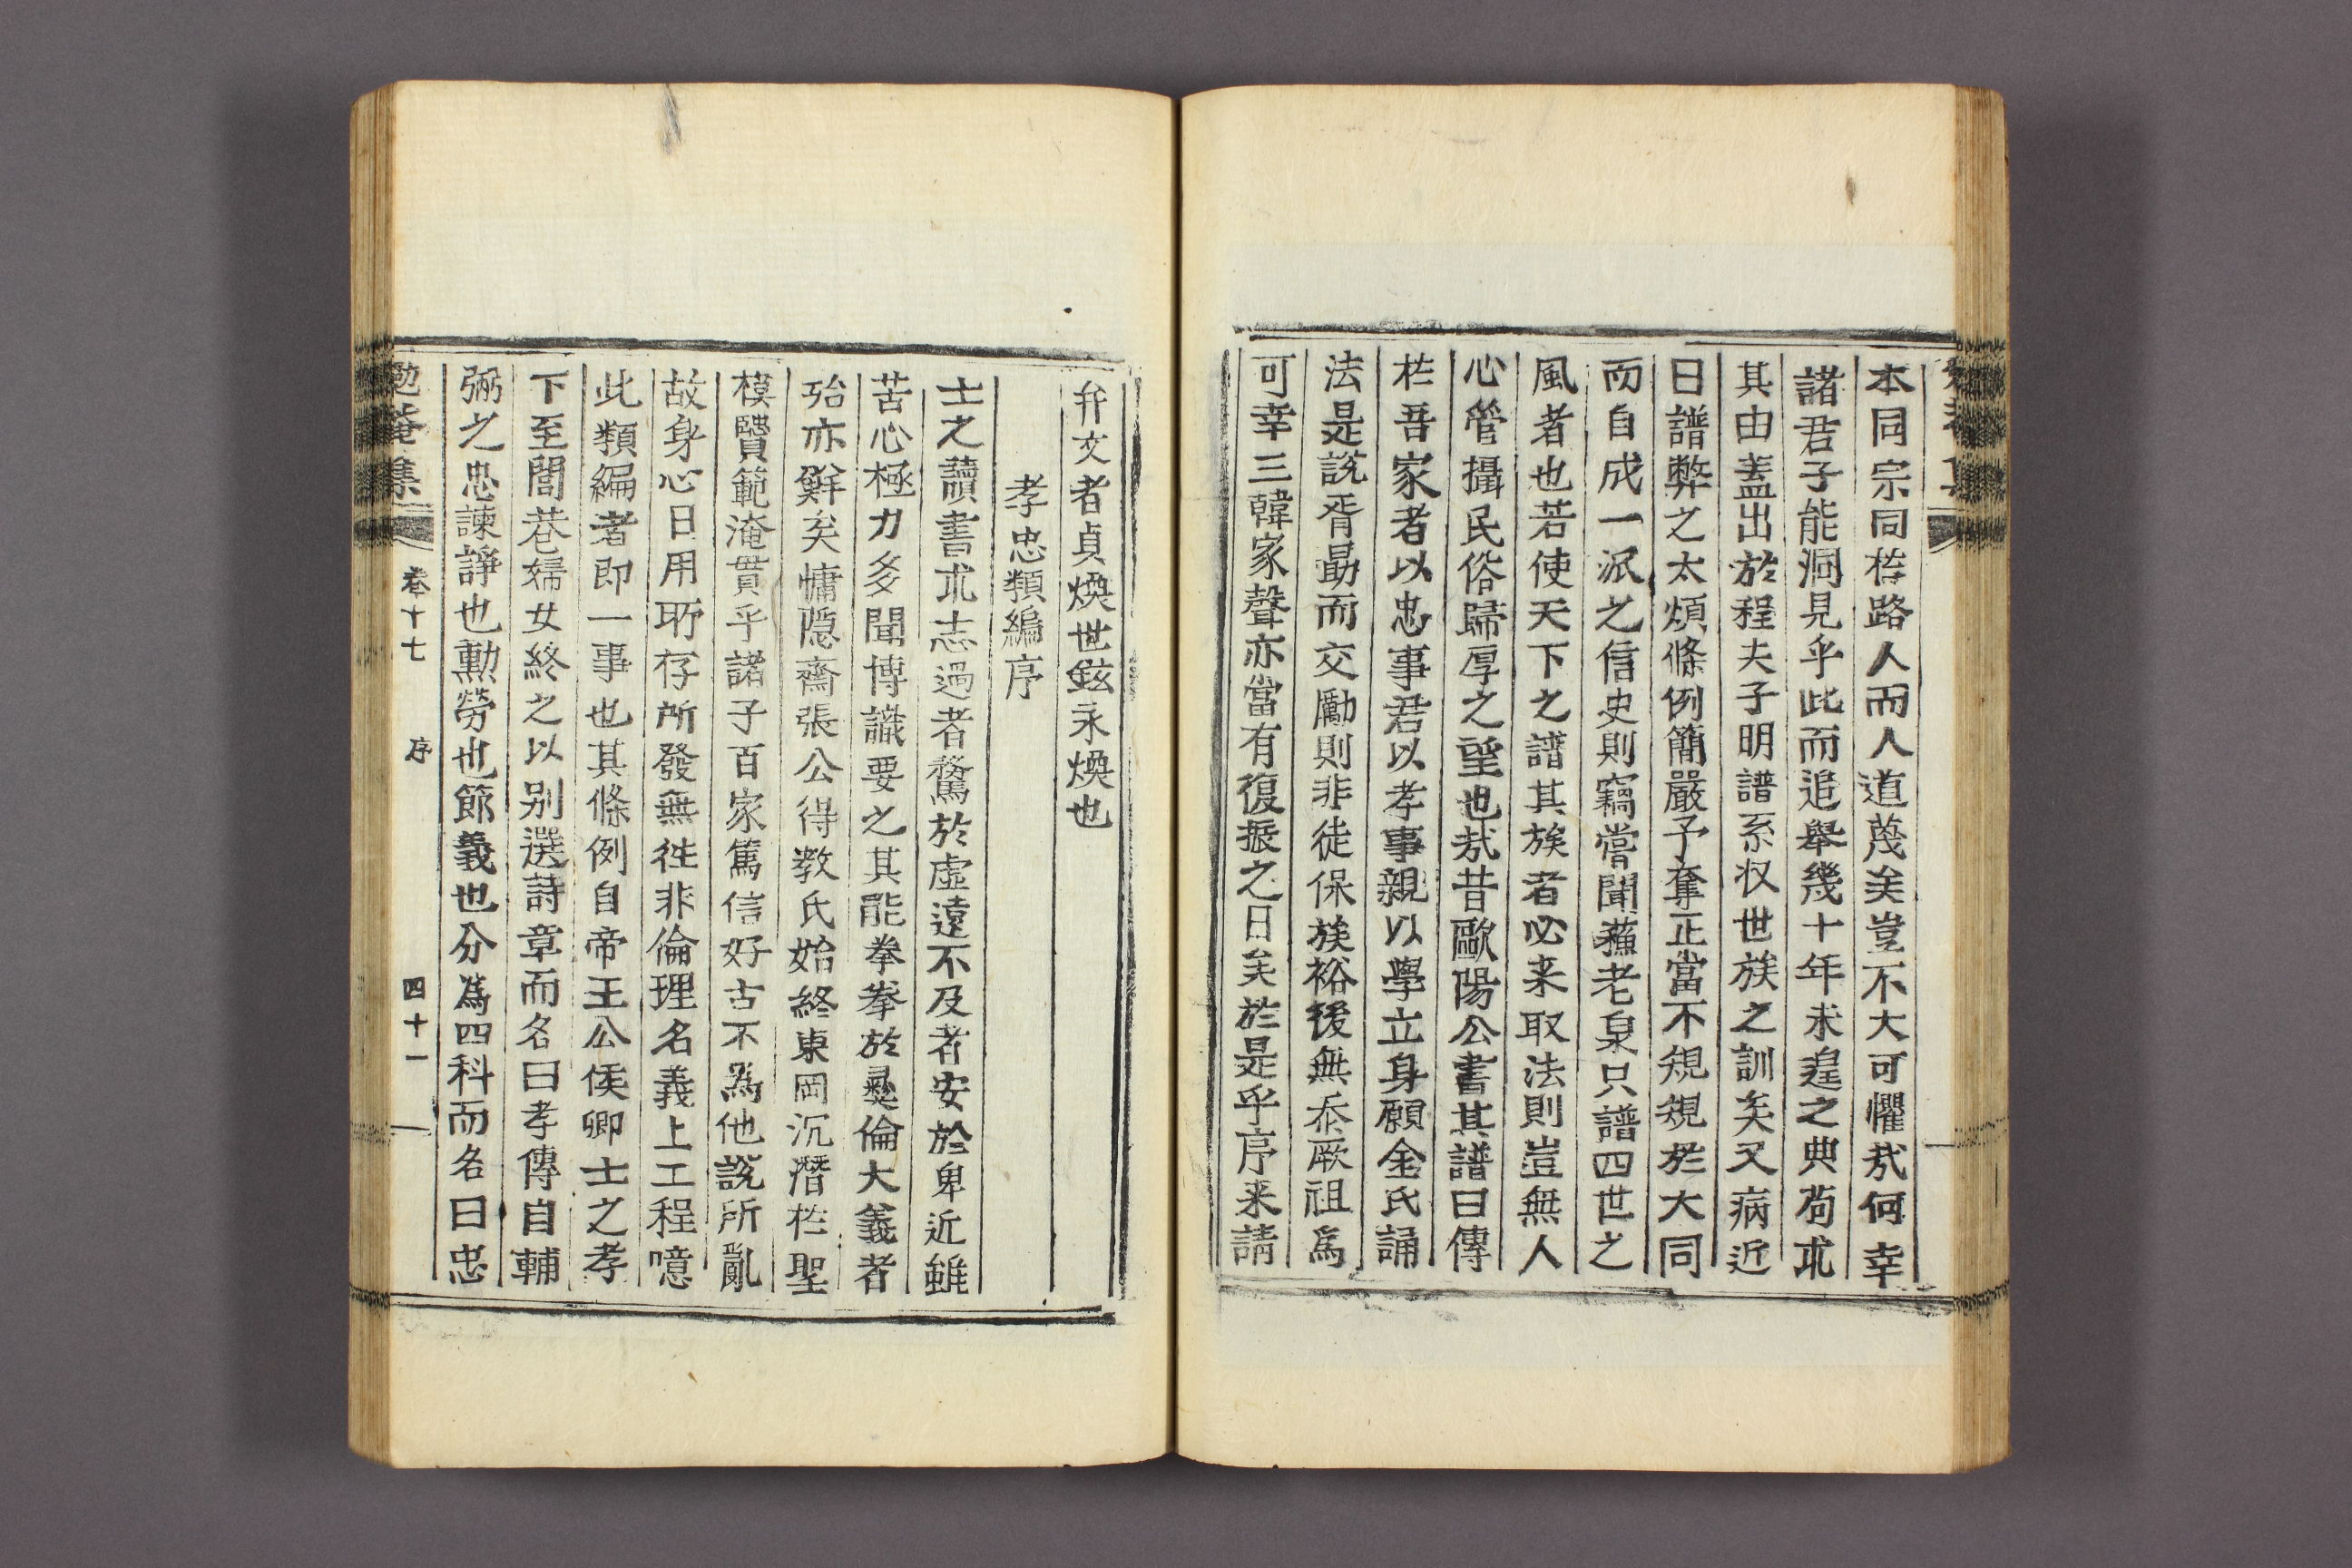 本同宗同嵆路人而人道蔑矣豈不大可懼哉何幸
諸君子能洞見乎此而追擧幾十年未遑之典苟求
其由盖出於程夫子明譜系収世族之訓矣又病近
日譜弊之太煩條例簡嚴予奪正當不規規於大同
而自成一派之信史則竊嘗聞蘓老泉只譜四世之
風者也若使天下之譜其族者必来取法則豈無人
心管攝民俗歸厚之望也㦲昔歐陽公書其譜曰傳
於吾家者以忠事君以孝事親以學立身願金氏誦
法是說胥勗而交勵則非徒保族裕後無忝厥祖爲
可幸三韓家聲亦當有復振之日矣於是乎序来請
弁文者貞煥世鉉永煥也
孝忠類編序
士之讀書求志過者騖於虛遠不及者安於卑近雖
苦心極力多聞博識要之其能拳拳於彛倫大義者
殆亦鮮矣慵隱齋張公得教氏始終東岡沉潛於聖
模賢範淹貫乎諸子百家篤信好古不爲他說所亂
故身心日用所存所發無徃非倫理名義上工程噫
此類編者即一事也其條例自帝王公侯卿士之孝
下至閭巷婦女終之以别選詩章而名曰孝傳自輔
弼之忠諫諍也勳勞也節義也分爲四科而名曰忠
勉菴集 卷十七 序 四十一